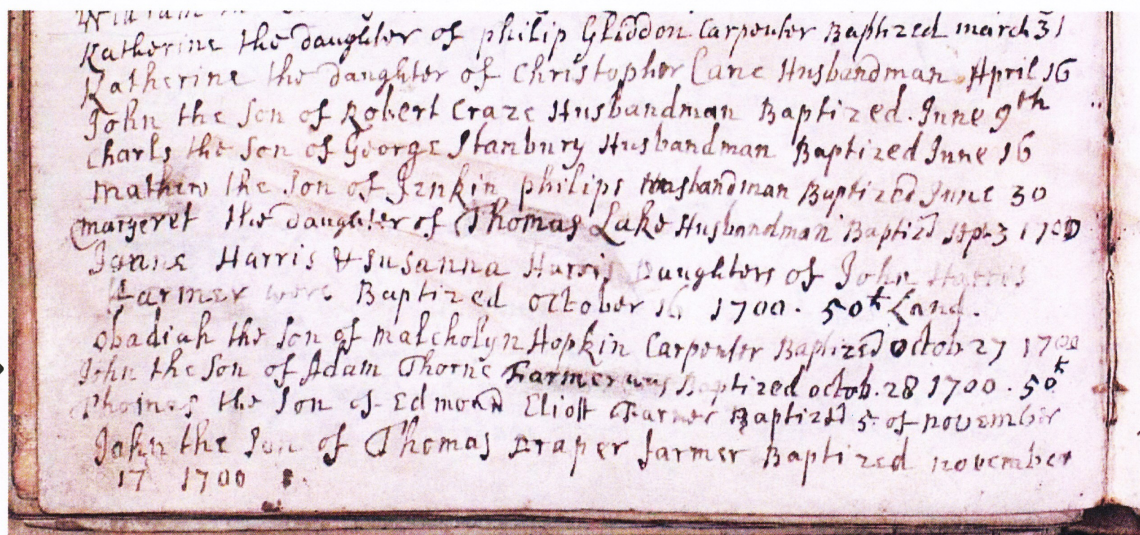 Katherine the daughter of philip Gliddon Carpenter Baptized march 31
Katherine the daughter of Christopher Cane Husbandman April 16
John the son of Robert Craze Husbandman Baptized June 9th
Charls the Son of George Stanbury Husbandman Baptized June 16
Mathew the Son of Jenkin philips Husbandman Baptized June 30
Margeret the daughter of Thomas Lake Husbandman Baptizd Sept. 3 1700
Joane Harris & Susanna Harris Daughters of John Harris
Farmer were Baptized october 16 1700. 50ᵗ Land.
Obadiah the son of malcholyn Hopkin Carpenter Baptized octob 27 1700
John the Son of Adam Thorne Farmer was Baptized octob. 28 1700. 50ᵗ
Thomas the Son of Edmond Eliott Farmer Baptized 5 of november
John the Son of Thomas Draper farmer Baptized november
17 1700